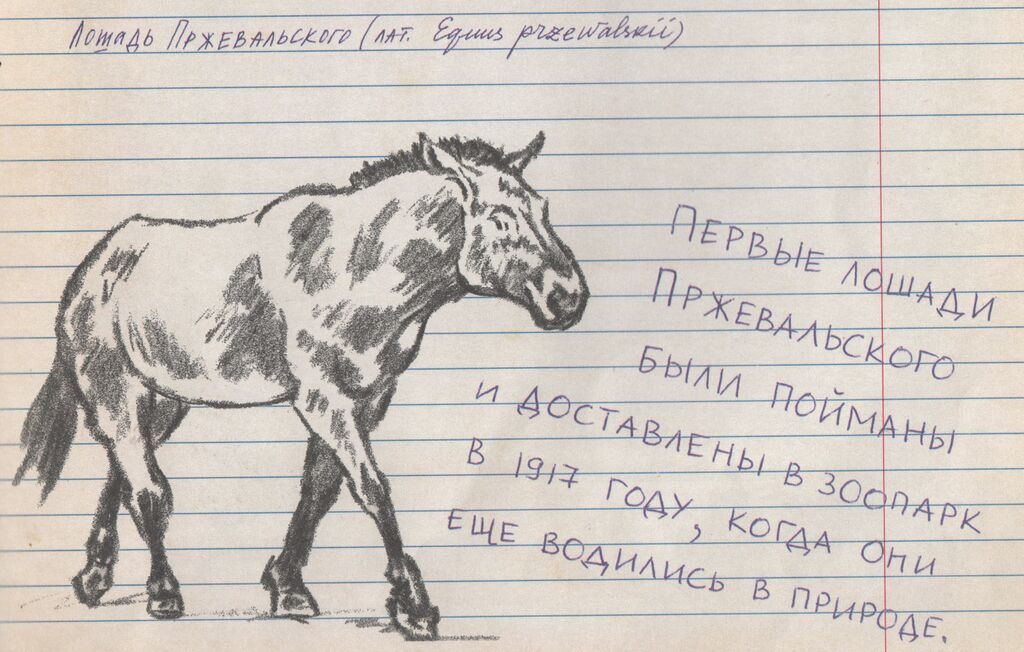 Лошадь Пржевальского (лат. Equus przewalskii)
Первые лошади
Пржевальского
были пойманы
и доставлены в зоопарк
в 1917 году, когда они
еще водились в природе.